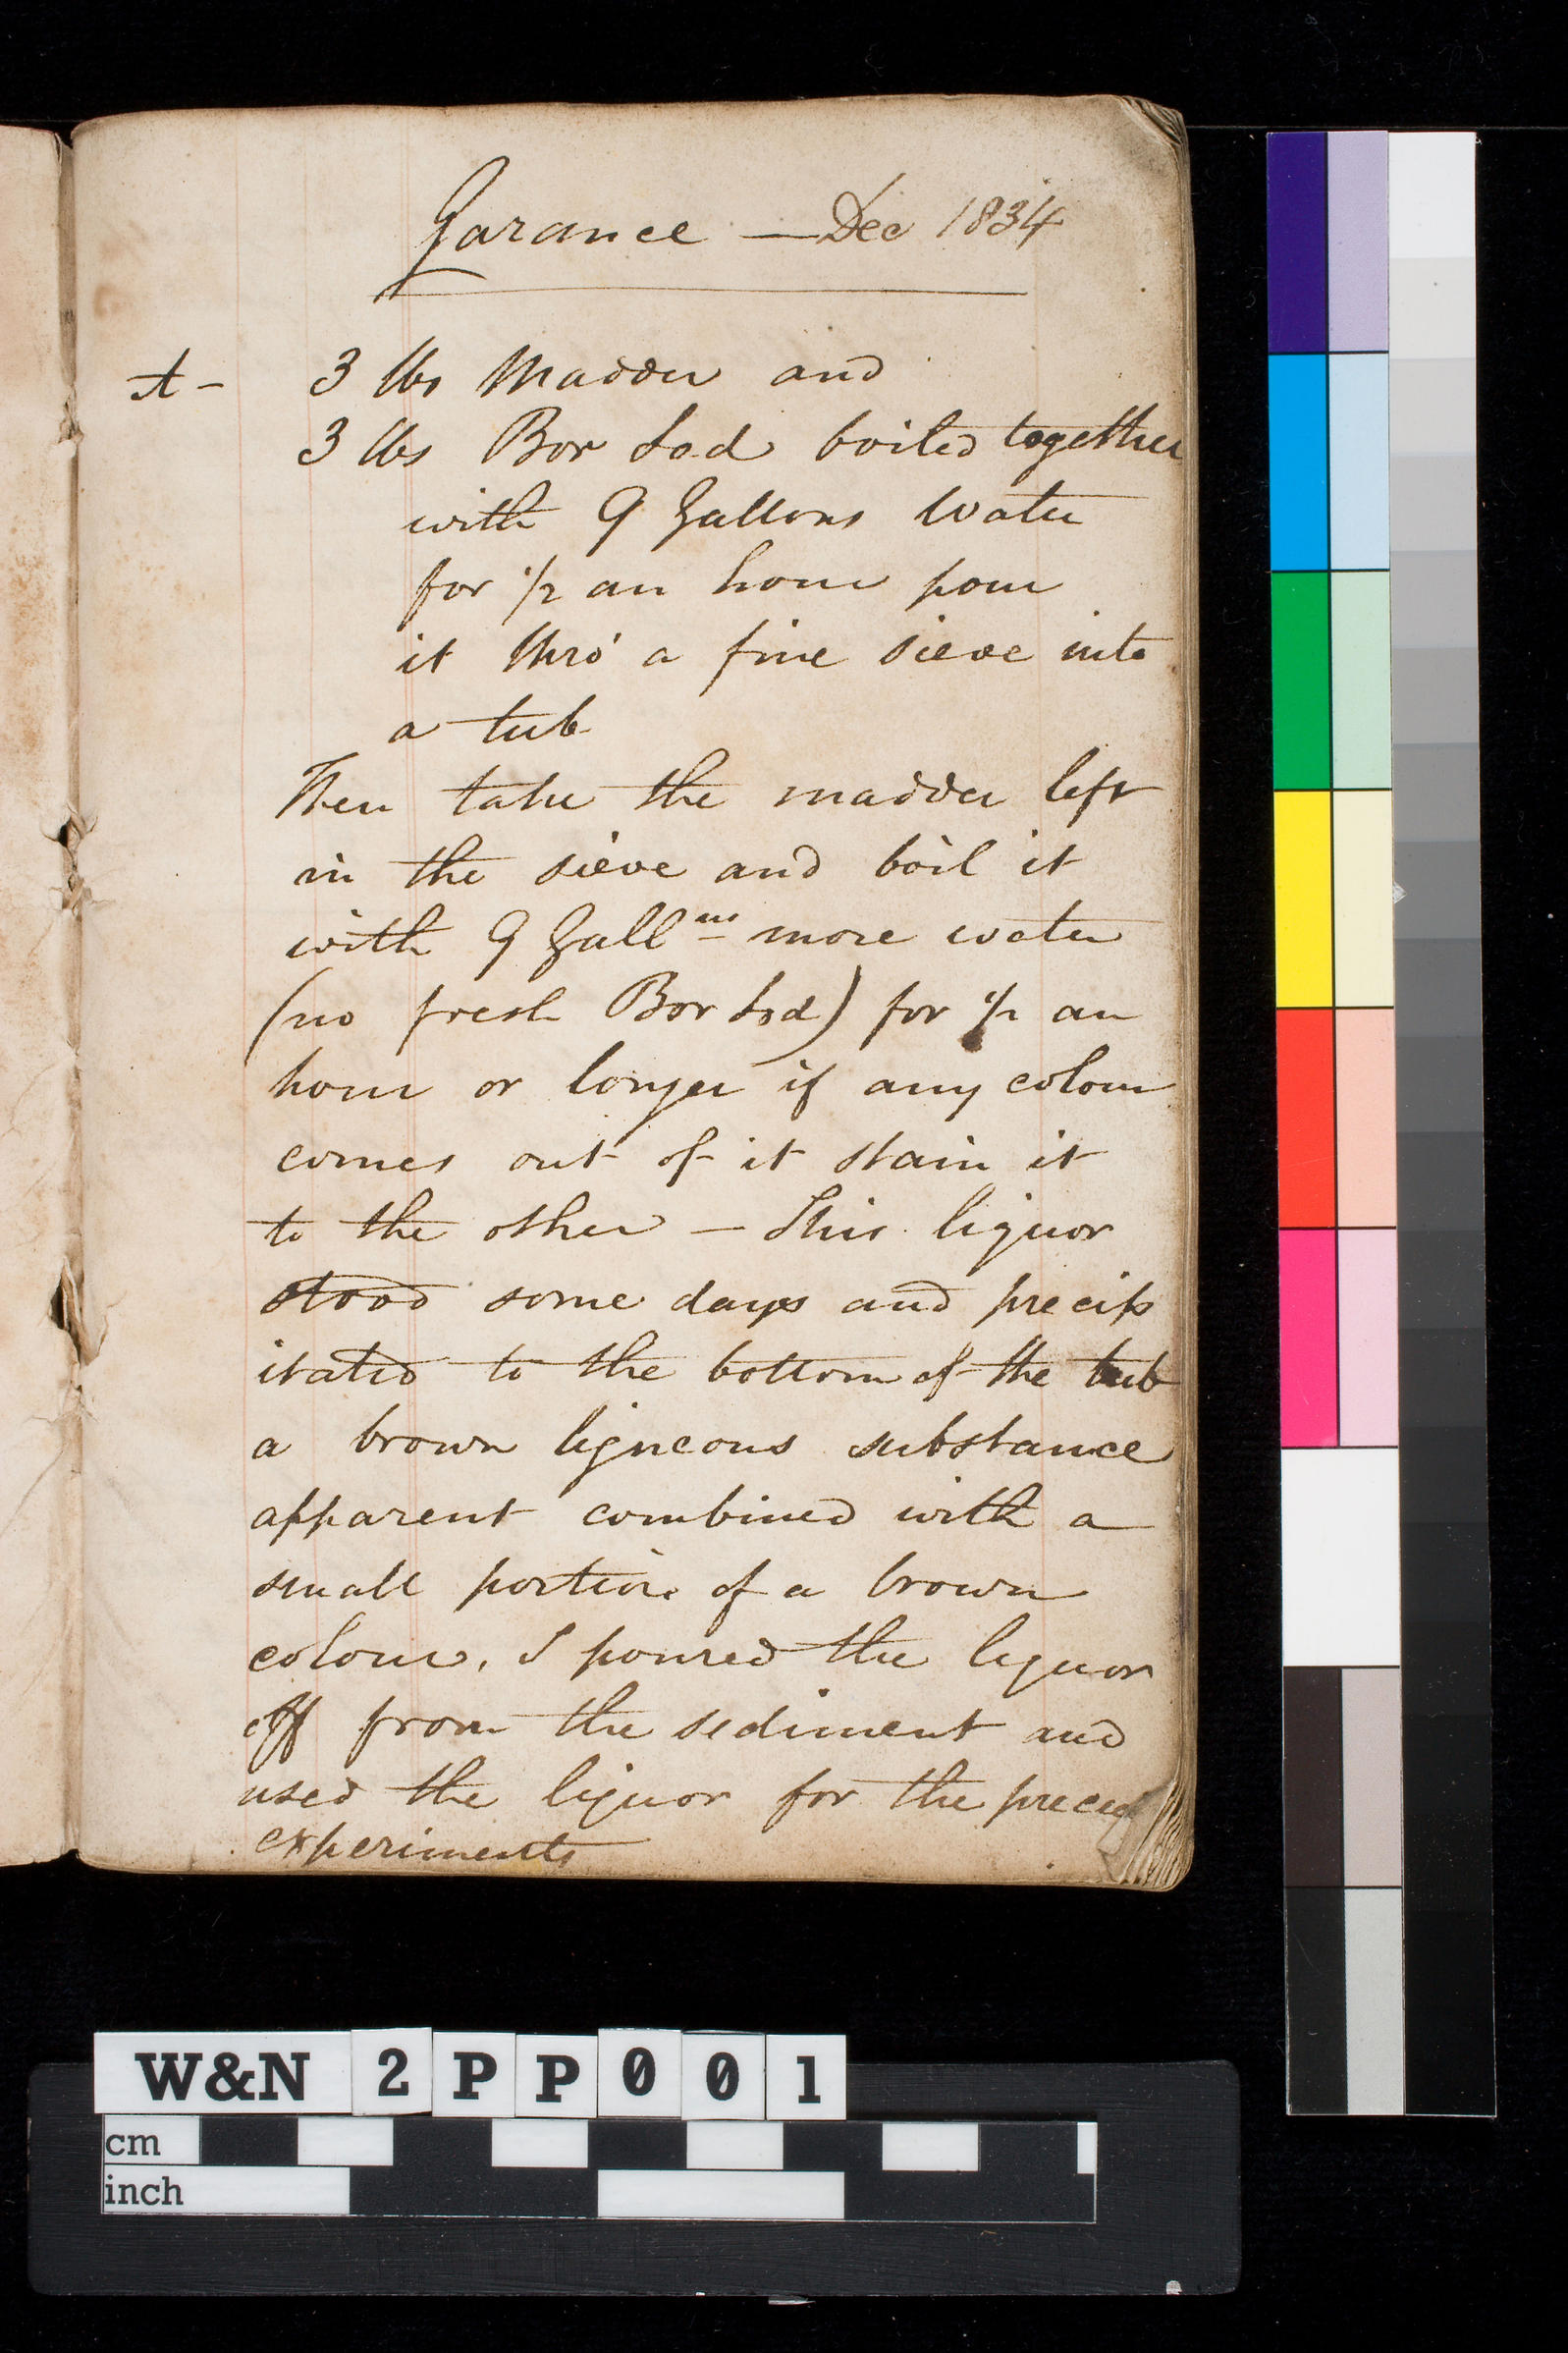 Garance — Dec 1834
A - 3 lbs Madder and
3 lbs Bor Sod boiled together
with 9 Gallons Water
for 1/2 an hour pour
it thro' a fine sieve into
a tub
Then take the madder left
in the sieve and boil it
with 9 Gallns more water
(no fresh Bor Sod) for 1/2 an
hour or longer if any colour
comes out of it stain it
to the other — This liquor
stood some days and precip
itated to the bottom of the tub
a brown ligneous substance
apparent combined with a
small portion of a brown
colour. I poured the liquor
off from the sediment and
used the liquor for the
experiments
W&N 2PP001
cm
inch